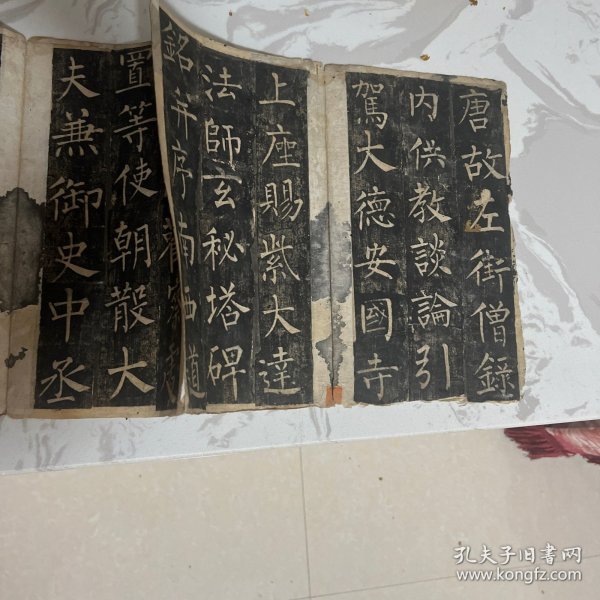 唐故左街僧錄
内供教談論引
駕大德安國寺
上座賜紫大達
法師玄秘塔碑
銘并序
南西道
置等使朝散大
夫兼御史中丞
孔夫子旧书网
www.kongfz.com